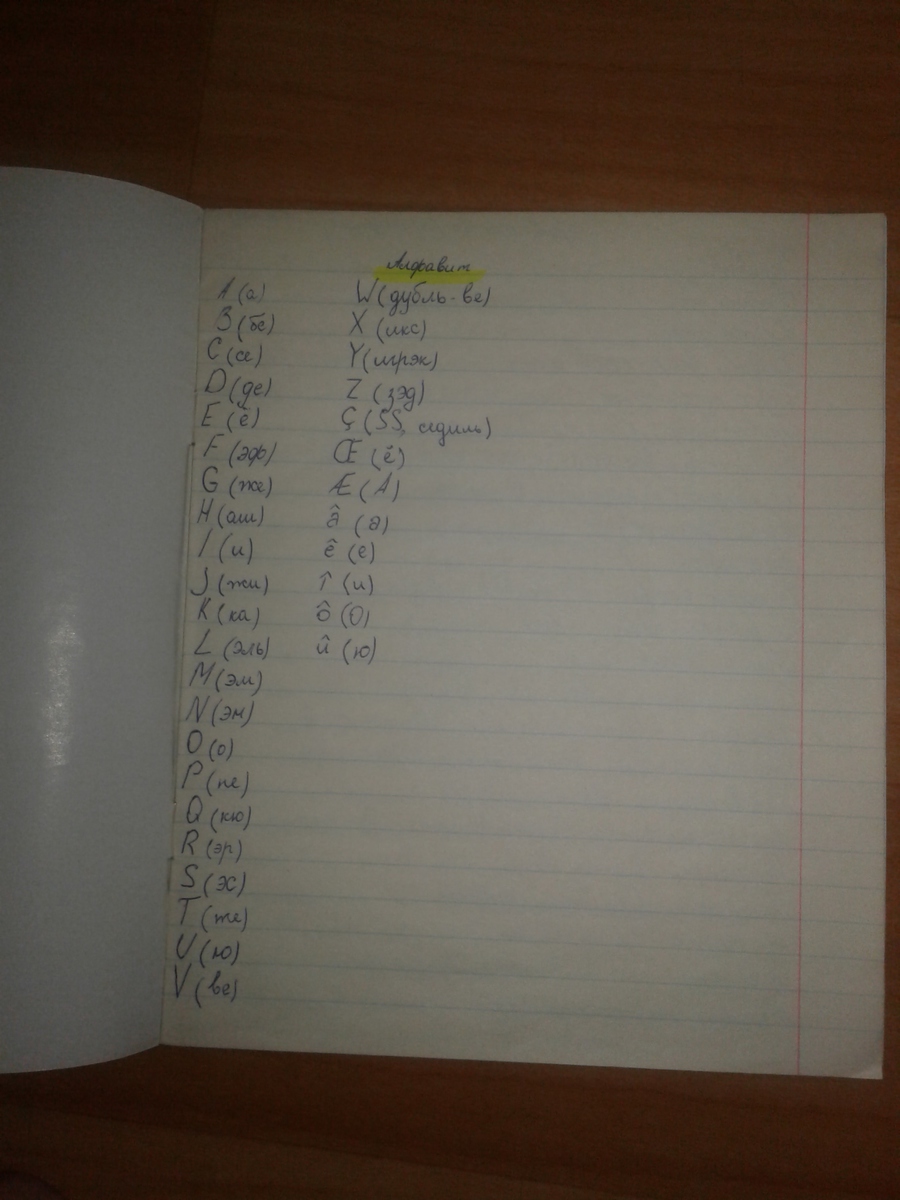 Алфавит
A (а)
B (бе)
C (се)
D (де)
E (ё)
F (эф)
G (же)
H (аш)
I (и)
J (жи)
K (ка)
L (эль)
M (эм)
N (эн)
O (о)
P (пе)
Q (кю)
R (эр)
S (эс)
T (те)
U (ю)
V (ве)
W (дубль-ве)
X (икс)
Y (игрэк)
Z (зэд)
Ç (SS, седиль)
Œ (ё)
Æ (А)
â (а)
ê (е)
î (и)
ô (О)
û (ю)